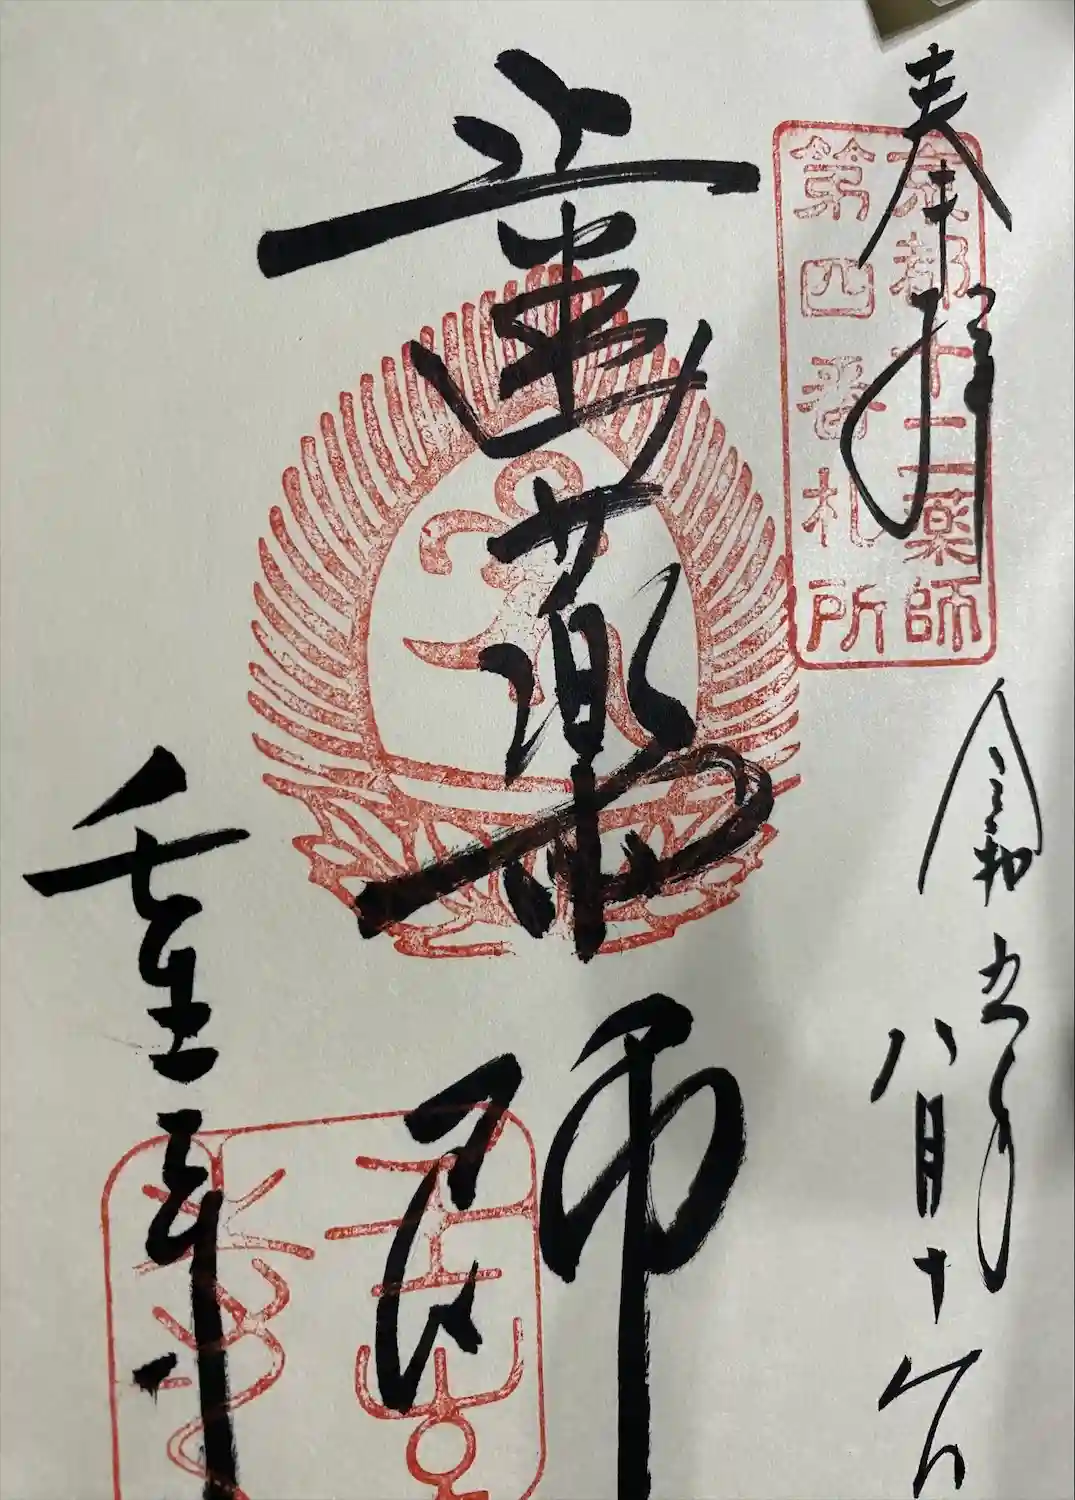 奉拝
京都十二薬師
第四番札所
令和五年
八月十
歯薬師
壬生寺